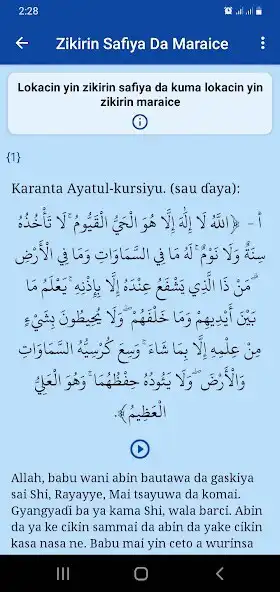 2:28
Zikirin Safiya Da Maraice
Lokacin yin zikirin safiya da kuma lokacin yin
zikirin maraice
{1}
Karanta Ayatul-kursiyu. (sau ɗaya):
أ - ﴿اللَّهُ لَا إِلَٰهَ إِلَّا هُوَ الْحَيُّ الْقَيُّومُ ۚ لَا تَأْخُذُهُ
سِنَةٌ وَلَا نَوْمٌ ۚ لَهُ مَا فِي السَّمَاوَاتِ وَمَا فِي الْأَرْضِ
ۗ مَنْ ذَا الَّذِي يَشْفَعُ عِنْدَهُ إِلَّا بِإِذْنِهِ ۚ يَعْلَمُ مَا
بَيْنَ أَيْدِيهِمْ وَمَا خَلْفَهُمْ ۖ وَلَا يُحِيطُونَ بِشَيْءٍ
مِنْ عِلْمِهِ إِلَّا بِمَا شَاءَ ۚ وَسِعَ كُرْسِيُّهُ السَّمَاوَاتِ
وَالْأَرْضَ ۖ وَلَا يَئُودُهُ حِفْظُهُمَا ۚ وَهُوَ الْعَلِيُّ
الْعَظِيمُ﴾.
Allah, babu wani abin bautawa da gaskiya
sai Shi, Rayayye, Mai tsayuwa da komai.
Gyangyaɗi ba ya kama Shi, wala barci. Abin
da ya ke cikin sammai da abin da yake cikin
kasa nasa ne. Babu mai yin ceto a wurinsa